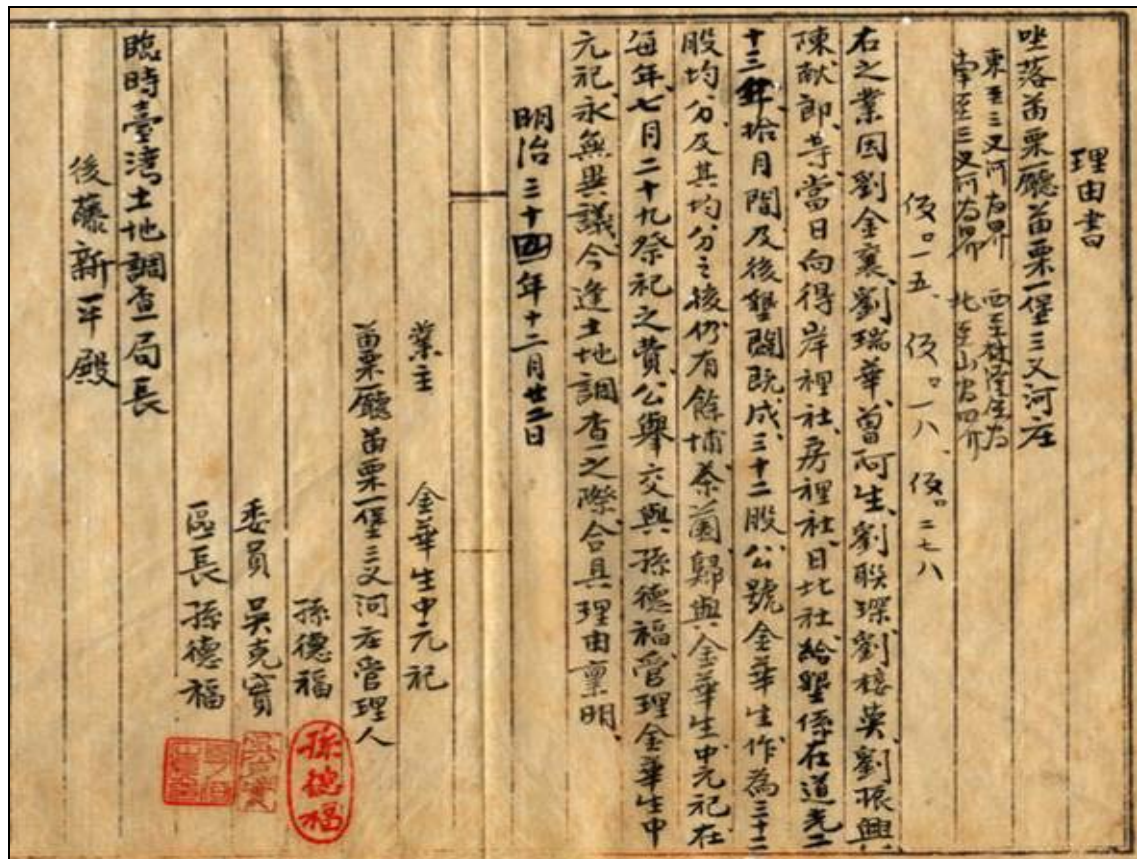 理由書
坐落苗栗廳苗栗一堡三叉河庄
東至三叉河為界 西至 為
南至三叉河為界 北至山 四界
仮。一五、仮。一八、仮。二七八
右之業因劉金襄、劉瑞華、曾阿生、劉聯琛、劉 英、劉振興、
陳献郎、等、當日向得岸裡社、房裡社、日北社、給墾係在道光二
十三年、拾月間、及後墾闢既成、三十二股公號金華生作為三十二
股均分、及其均分之後、仍有餘埔茶園、歸與金華生中元祀、在
每年、七月二十九祭祀之費、公舉交與孫德福管理、金華生中
元祀、永無異議、今逢土地調查之際、合具理由稟明、
明治三十四年十二月廿二日
業主 金華生中元祀
苗栗廳苗栗一堡三叉河庄管理人
孫德福
孫德福
委員 吳克寶
區長 孫德福
臨時臺灣土地調查局長
後藤新平殿